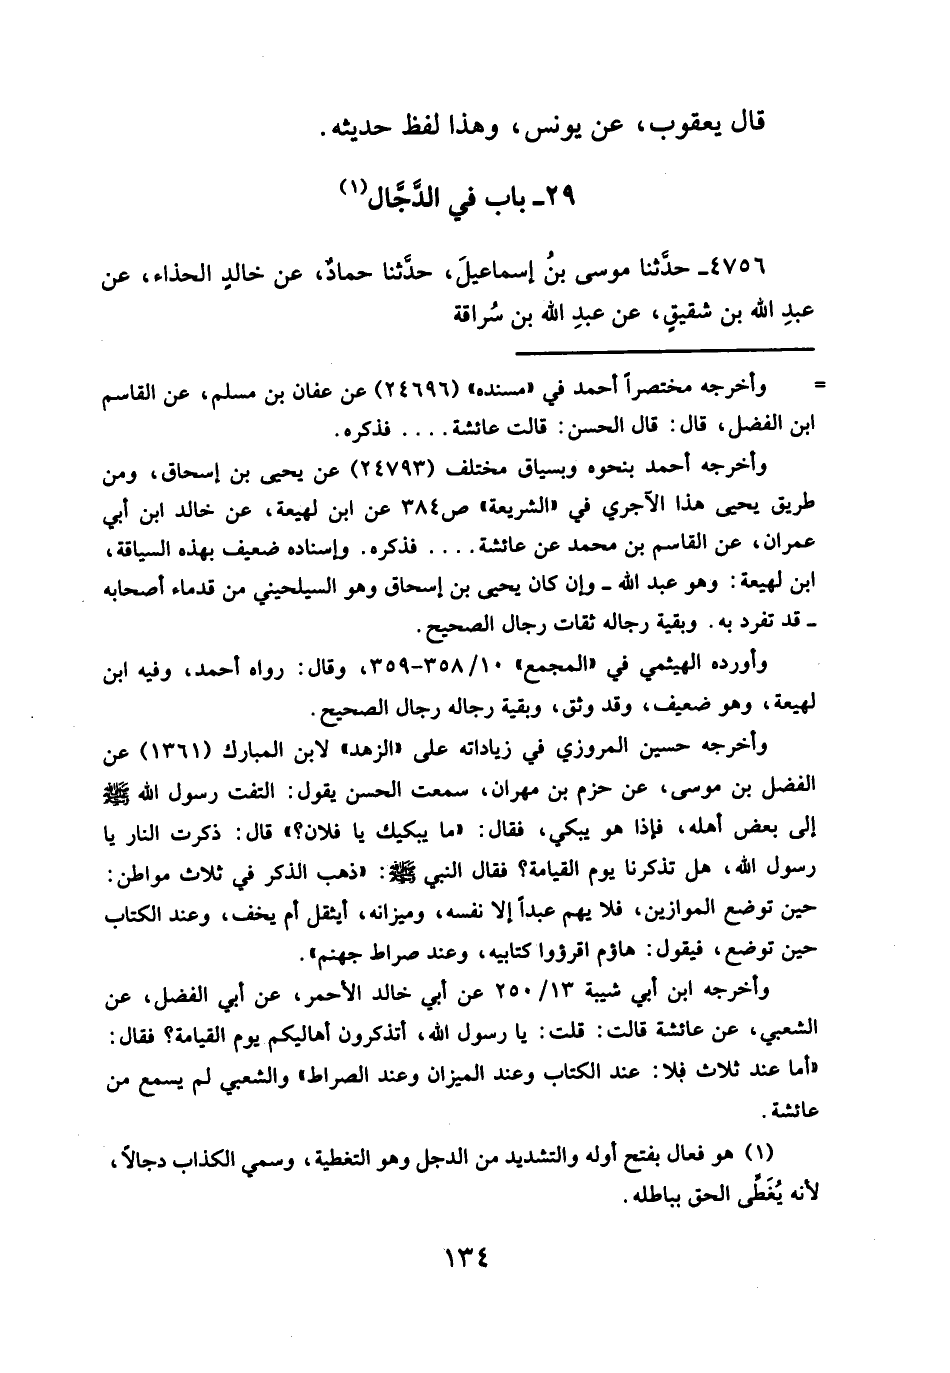 قال يعقوب، عن يونس، وهذا لفظ حديثه.
٢٩ـ باب في الدَّجَّال(١)
٤٧٥٦ـ حدَّثنا موسى بنُ إسماعيلَ، حدَّثنا حمادٌ، عن خالدٍ الحذاء، عن
عبدِ الله بن شقيقٍ، عن عبدِ الله بن سُراقة
= وأخرجه مختصراً أحمد في «مسنده» (٢٤٦٩٦) عن عفان بن مسلم، عن القاسم
ابن الفضل، قال: قال الحسن: قالت عائشة.... فذكره.
وأخرجه أحمد بنحوه وبسياق مختلف (٢٤٧٩٣) عن يحيى بن إسحاق، ومن
طريق يحيى هذا الآجري في «الشريعة» ص٣٨٤ عن ابن لهيعة، عن خالد ابن أبي
عمران، عن القاسم بن محمد عن عائشة.... فذكره. وإسناده ضعيف بهذه السياقة،
ابن لهيعة: وهو عبد الله ـ وإن كان يحيى بن إسحاق وهو السيلحيني من قدماء أصحابه
ـ قد تفرد به. وبقية رجاله ثقات رجال الصحيح.
وأورده الهيثمي في «المجمع» ١٠/ ٣٥٨-٣٥٩، وقال: رواه أحمد، وفيه ابن
لهيعة، وهو ضعيف، وقد وثق، وبقية رجاله رجال الصحيح.
وأخرجه حسين المروزي في زياداته على «الزهد» لابن المبارك (١٣٦١) عن
الفضل بن موسى، عن حزم بن مهران، سمعت الحسن يقول: التفت رسول الله ﷺ
إلى بعض أهله، فإذا هو يبكي، فقال: «ما يبكيك يا فلان؟» قال: ذكرت النار يا
رسول الله، هل تذكرنا يوم القيامة؟ فقال النبي ﷺ: «ذهب الذكر في ثلاث مواطن:
حين توضع الموازين، فلا يهم عبداً إلا نفسه، وميزانه، أيثقل أم يخف، وعند الكتاب
حين توضع، فيقول: هاؤم اقرؤوا كتابيه، وعند صراط جهنم».
وأخرجه ابن أبي شيبة ١٣/ ٢٥٠ عن أبي خالد الأحمر، عن أبي الفضل، عن
الشعبي، عن عائشة قالت: قلت: يا رسول الله، أتذكرون أهاليكم يوم القيامة؟ فقال:
«أما عند ثلاث فلا: عند الكتاب وعند الميزان وعند الصراط» والشعبي لم يسمع من
عائشة.
(١) هو فعال بفتح أوله والتشديد من الدجل وهو التغطية، وسمي الكذاب دجالاً،
لأنه يُغَطِّى الحق بباطله.
١٣٤